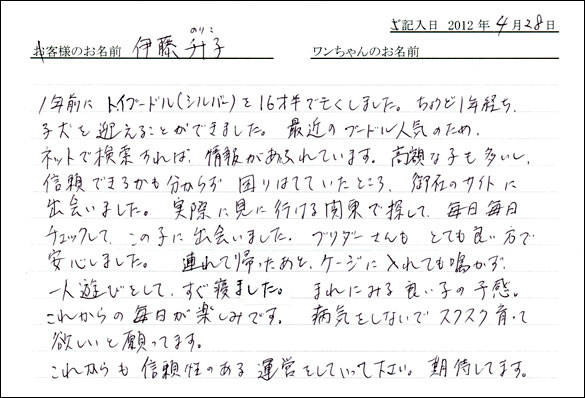 ご記入日 2012年4月28日
お客様のお名前 伊藤 升子 のりこ ワンちゃんのお名前
1年前に トイプードル(シルバー)を16才半で亡くしました。ちょうど1年経ち、
子犬を迎えることができました。最近のプードル人気のため、
ネットで検索すれば、情報があふれています。高額な子も多いし、
信頼できるかも分からず 困りはてていたところ、御社のサイトに
出会いました。実際に見に行ける関東で探して、毎日毎日
チェックして、この子に出会いました。ブリダーさんも とても良い方で
安心しました。連れて帰ったあと、ケージに入れても鳴かず、
一人遊びをして、すぐ寝ました。まれにみる良い子の予感。
これからの毎日が楽しみです。病気をしないでスクスク育って
欲しいと願ってます。
これからも信頼性のある運営をしていって下さい。期待してます。